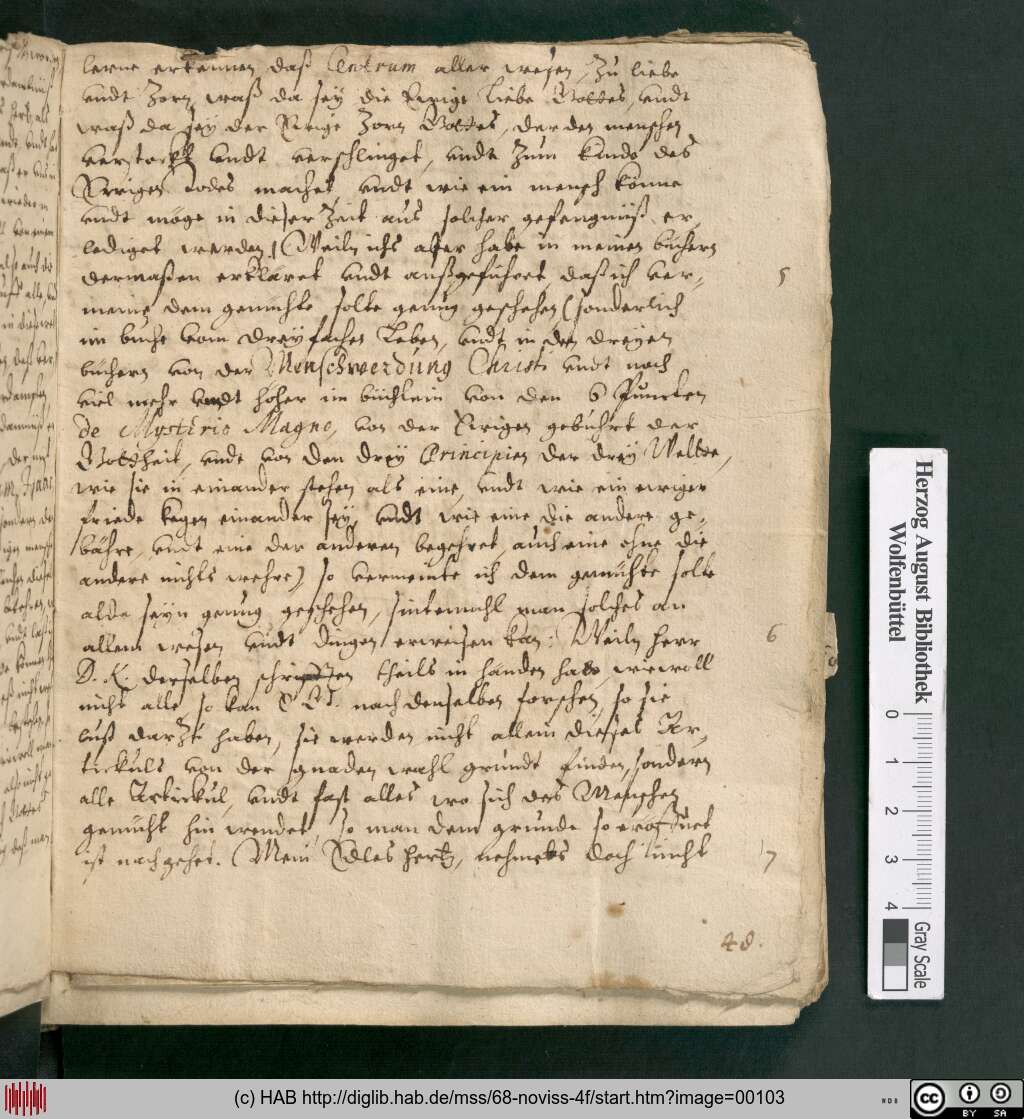 lerne erkennen daß Centrum aller wesen, zu liebe
undt Zorn, waß da sey die Ewige liebe Gottes, undt
waß da sey der Ewige Zorn Gottes, der den menschen
verstockt undt verschlinget, undt zum kinde des
Ewigen todes machet undt wie ein mensch könne
undt möge in dieser Zeit aus solcher gefengnüß er
lediget werden, (Weiln ichs aber habe in meinen büchern
dermaßen erkläret undt außgeführet, daß ich ver-
meine dem gemühte solte genug geschehen (sonderlich
im buche vom dreyfachen Leben, undt in den dreyen
büchern von der Menschwerdung Christi undt noch
viel mehr undt höher im büchlein von den 6 Puncten
de Mysterio Magno, von der Ewigen gebuhrt der
Gottheit, unde von den drey Principien der drey Welte,
wie sie in einander stehen als eine, undt wie ein ewiger
friede kegen einander sey, undt wie eine die andere ge-
bähre, undt eine der anderen begehret, auch eine ohne die
andere nichts wehre) so vermeinte ich dem gemühte solte
alda seyn genug geschehen, sintemahl man solches an
allem wesen undt dingen erweisen kan: Weiln herr
D. K. derselben schriften theils in händen hat, wiewoll
nicht alle, so kan nach denselben forschen, so sie
lust darzu haben, sie werden nicht allein dieses Ar-
tickuls von der gnaden wahl grundt finden, sondern
alle Artickul, undt fast alles wo sich des Menschen
gemüht hin wendet, so man dem grunde so eröffnet
ist nachgehet. (Mein Edles hertz, nehmets doch nicht
5
6
7
48.
Herzog August Bibliothek
Wolfenbüttel
0 1 2 3 4
Gray Scale
(c) HAB http://diglib.hab.de/mss/68-noviss-4f/start.htm?image=00103
cc BY SA